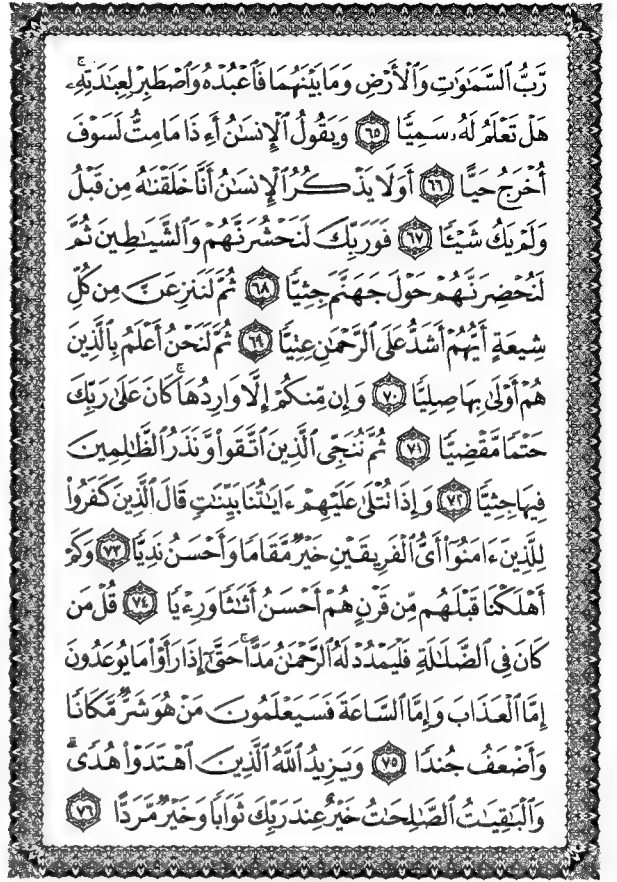 رَّبُّ ٱلسَّمَٰوَٰتِ وَٱلْأَرْضِ وَمَا بَيْنَهُمَا فَٱعْبُدْهُ وَٱصْطَبِرْ لِعِبَٰدَتِهِۦ ۚ
هَلْ تَعْلَمُ لَهُۥ سَمِيًّا ٦٥ وَيَقُولُ ٱلْإِنسَٰنُ أَءِذَا مَا مِتُّ لَسَوْفَ
أُخْرَجُ حَيًّا ٦٦ أَوَلَا يَذْكُرُ ٱلْإِنسَٰنُ أَنَّا خَلَقْنَٰهُ مِن قَبْلُ
وَلَمْ يَكُ شَيْـًٔا ٦٧ فَوَرَبِّكَ لَنَحْشُرَنَّهُمْ وَٱلشَّيَٰطِينَ ثُمَّ
لَنُحْضِرَنَّهُمْ حَوْلَ جَهَنَّمَ جِثِيًّا ٦٨ ثُمَّ لَنَنزِعَنَّ مِن كُلِّ
شِيعَةٍ أَيُّهُمْ أَشَدُّ عَلَى ٱلرَّحْمَٰنِ عِتِيًّا ٦٩ ثُمَّ لَنَحْنُ أَعْلَمُ بِٱلَّذِينَ
هُمْ أَوْلَىٰ بِهَا صِلِيًّا ٧٠ وَإِن مِّنكُمْ إِلَّا وَارِدُهَا ۚ كَانَ عَلَىٰ رَبِّكَ
حَتْمًا مَّقْضِيًّا ٧١ ثُمَّ نُنَجِّى ٱلَّذِينَ ٱتَّقَوا۟ وَّنَذَرُ ٱلظَّٰلِمِينَ
فِيهَا جِثِيًّا ٧٢ وَإِذَا تُتْلَىٰ عَلَيْهِمْ ءَايَٰتُنَا بَيِّنَٰتٍ قَالَ ٱلَّذِينَ كَفَرُوا۟
لِلَّذِينَ ءَامَنُوٓا۟ أَىُّ ٱلْفَرِيقَيْنِ خَيْرٌ مَّقَامًا وَأَحْسَنُ نَدِيًّا ٧٣ وَكَمْ
أَهْلَكْنَا قَبْلَهُم مِّن قَرْنٍ هُمْ أَحْسَنُ أَثَٰثًا وَرِءْيًا ٧٤ قُلْ مَن
كَانَ فِى ٱلضَّلَٰلَةِ فَلْيَمْدُدْ لَهُ ٱلرَّحْمَٰنُ مَدًّا ۚ حَتَّىٰٓ إِذَا رَأَوْا۟ مَا يُوعَدُونَ
إِمَّا ٱلْعَذَابَ وَإِمَّا ٱلسَّاعَةَ فَسَيَعْلَمُونَ مَنْ هُوَ شَرٌّ مَّكَانًا
وَأَضْعَفُ جُندًا ٧٥ وَيَزِيدُ ٱللَّهُ ٱلَّذِينَ ٱهْتَدَوْا۟ هُدًى ۗ
وَٱلْبَٰقِيَٰتُ ٱلصَّٰلِحَٰتُ خَيْرٌ عِندَ رَبِّكَ ثَوَابًا وَخَيْرٌ مَّرَدًّا ٧٦